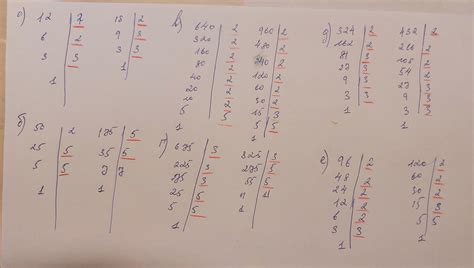 а) 12 2
6 2
3 3
1
18 2
9 3
3 3
1
б) 50 2
25 5
5 5
1
175 5
35 5
7 7
1
в) 640 2
320 2
160 2
80 2
40 2
20 2
10 2
5 5
1
960 2
480 2
240 2
120 2
60 2
30 2
15 3
5 5
1
г) 675 3
225 3
75 3
25 5
5 5
1
825 3
275 5
55 5
11 11
1
д) 324 2
162 2
81 3
27 3
9 3
3 3
1
432 2
216 2
108 2
54 2
27 3
9 3
3 3
1
е) 96 2
48 2
24 2
12 2
6 2
3 3
1
120 2
60 2
30 2
15 3
5 5
1